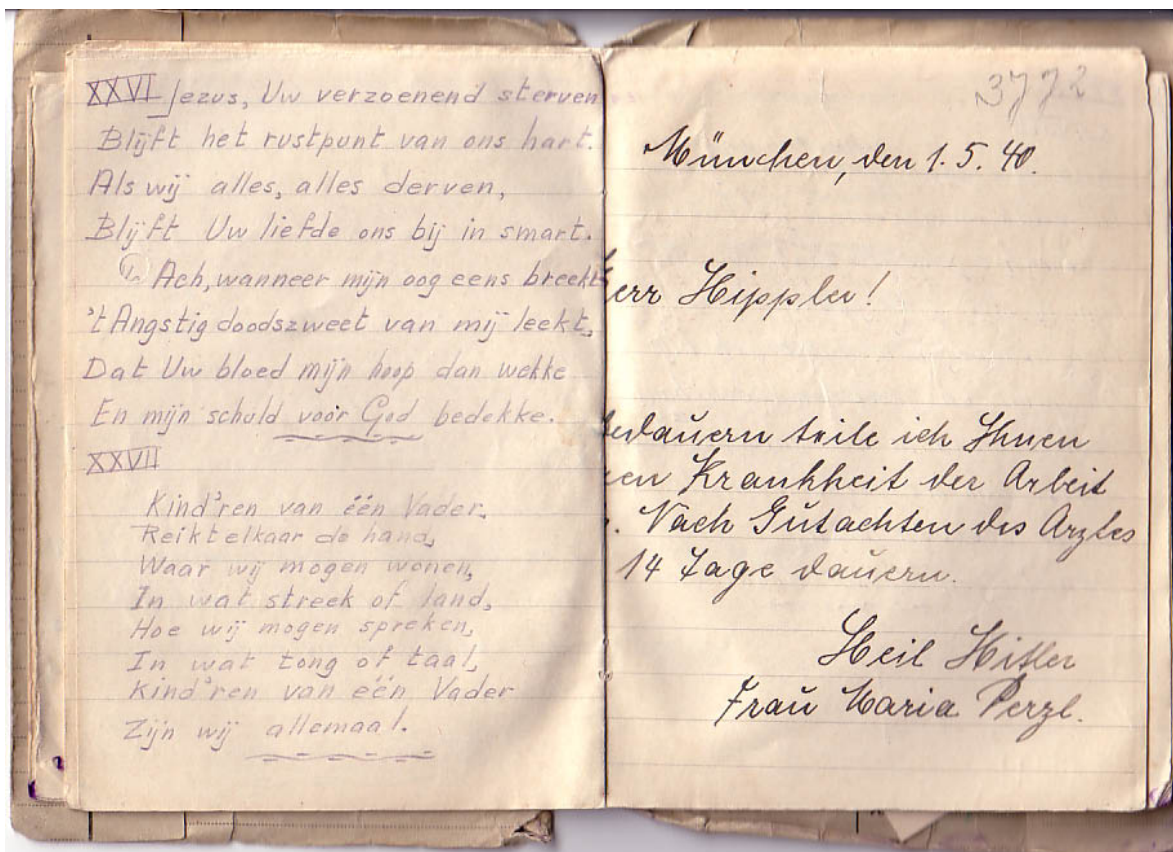 XXVI Jezus, Uw verzoenend sterven
Blijft het rustpunt van ons hart.
Als wij alles, alles derven,
Blijft Uw liefde ons bij in smart.
Ach, wanneer mijn oog eens breekt
't Angstig doodszweet van mij leekt,
Dat Uw bloed mijn hoop dan wekke
En mijn schuld voor God bedekke.
XXVII
Kind'ren van één Vader,
Reikt elkaar de hand,
Waar wij mogen wonen,
In wat streek of land,
Hoe wij mogen spreken,
In wat tong of taal,
Kind'ren van één Vader
Zijn wij allemaal.
3772
München, den 1. 5. 40.
err Hippler!
edauern teile ich Ihnen
en Krankheit der Arbeit
. Nach Gutachten des Arztes
14 Tage dauern.
Heil Hitler
Frau Maria Perzl.